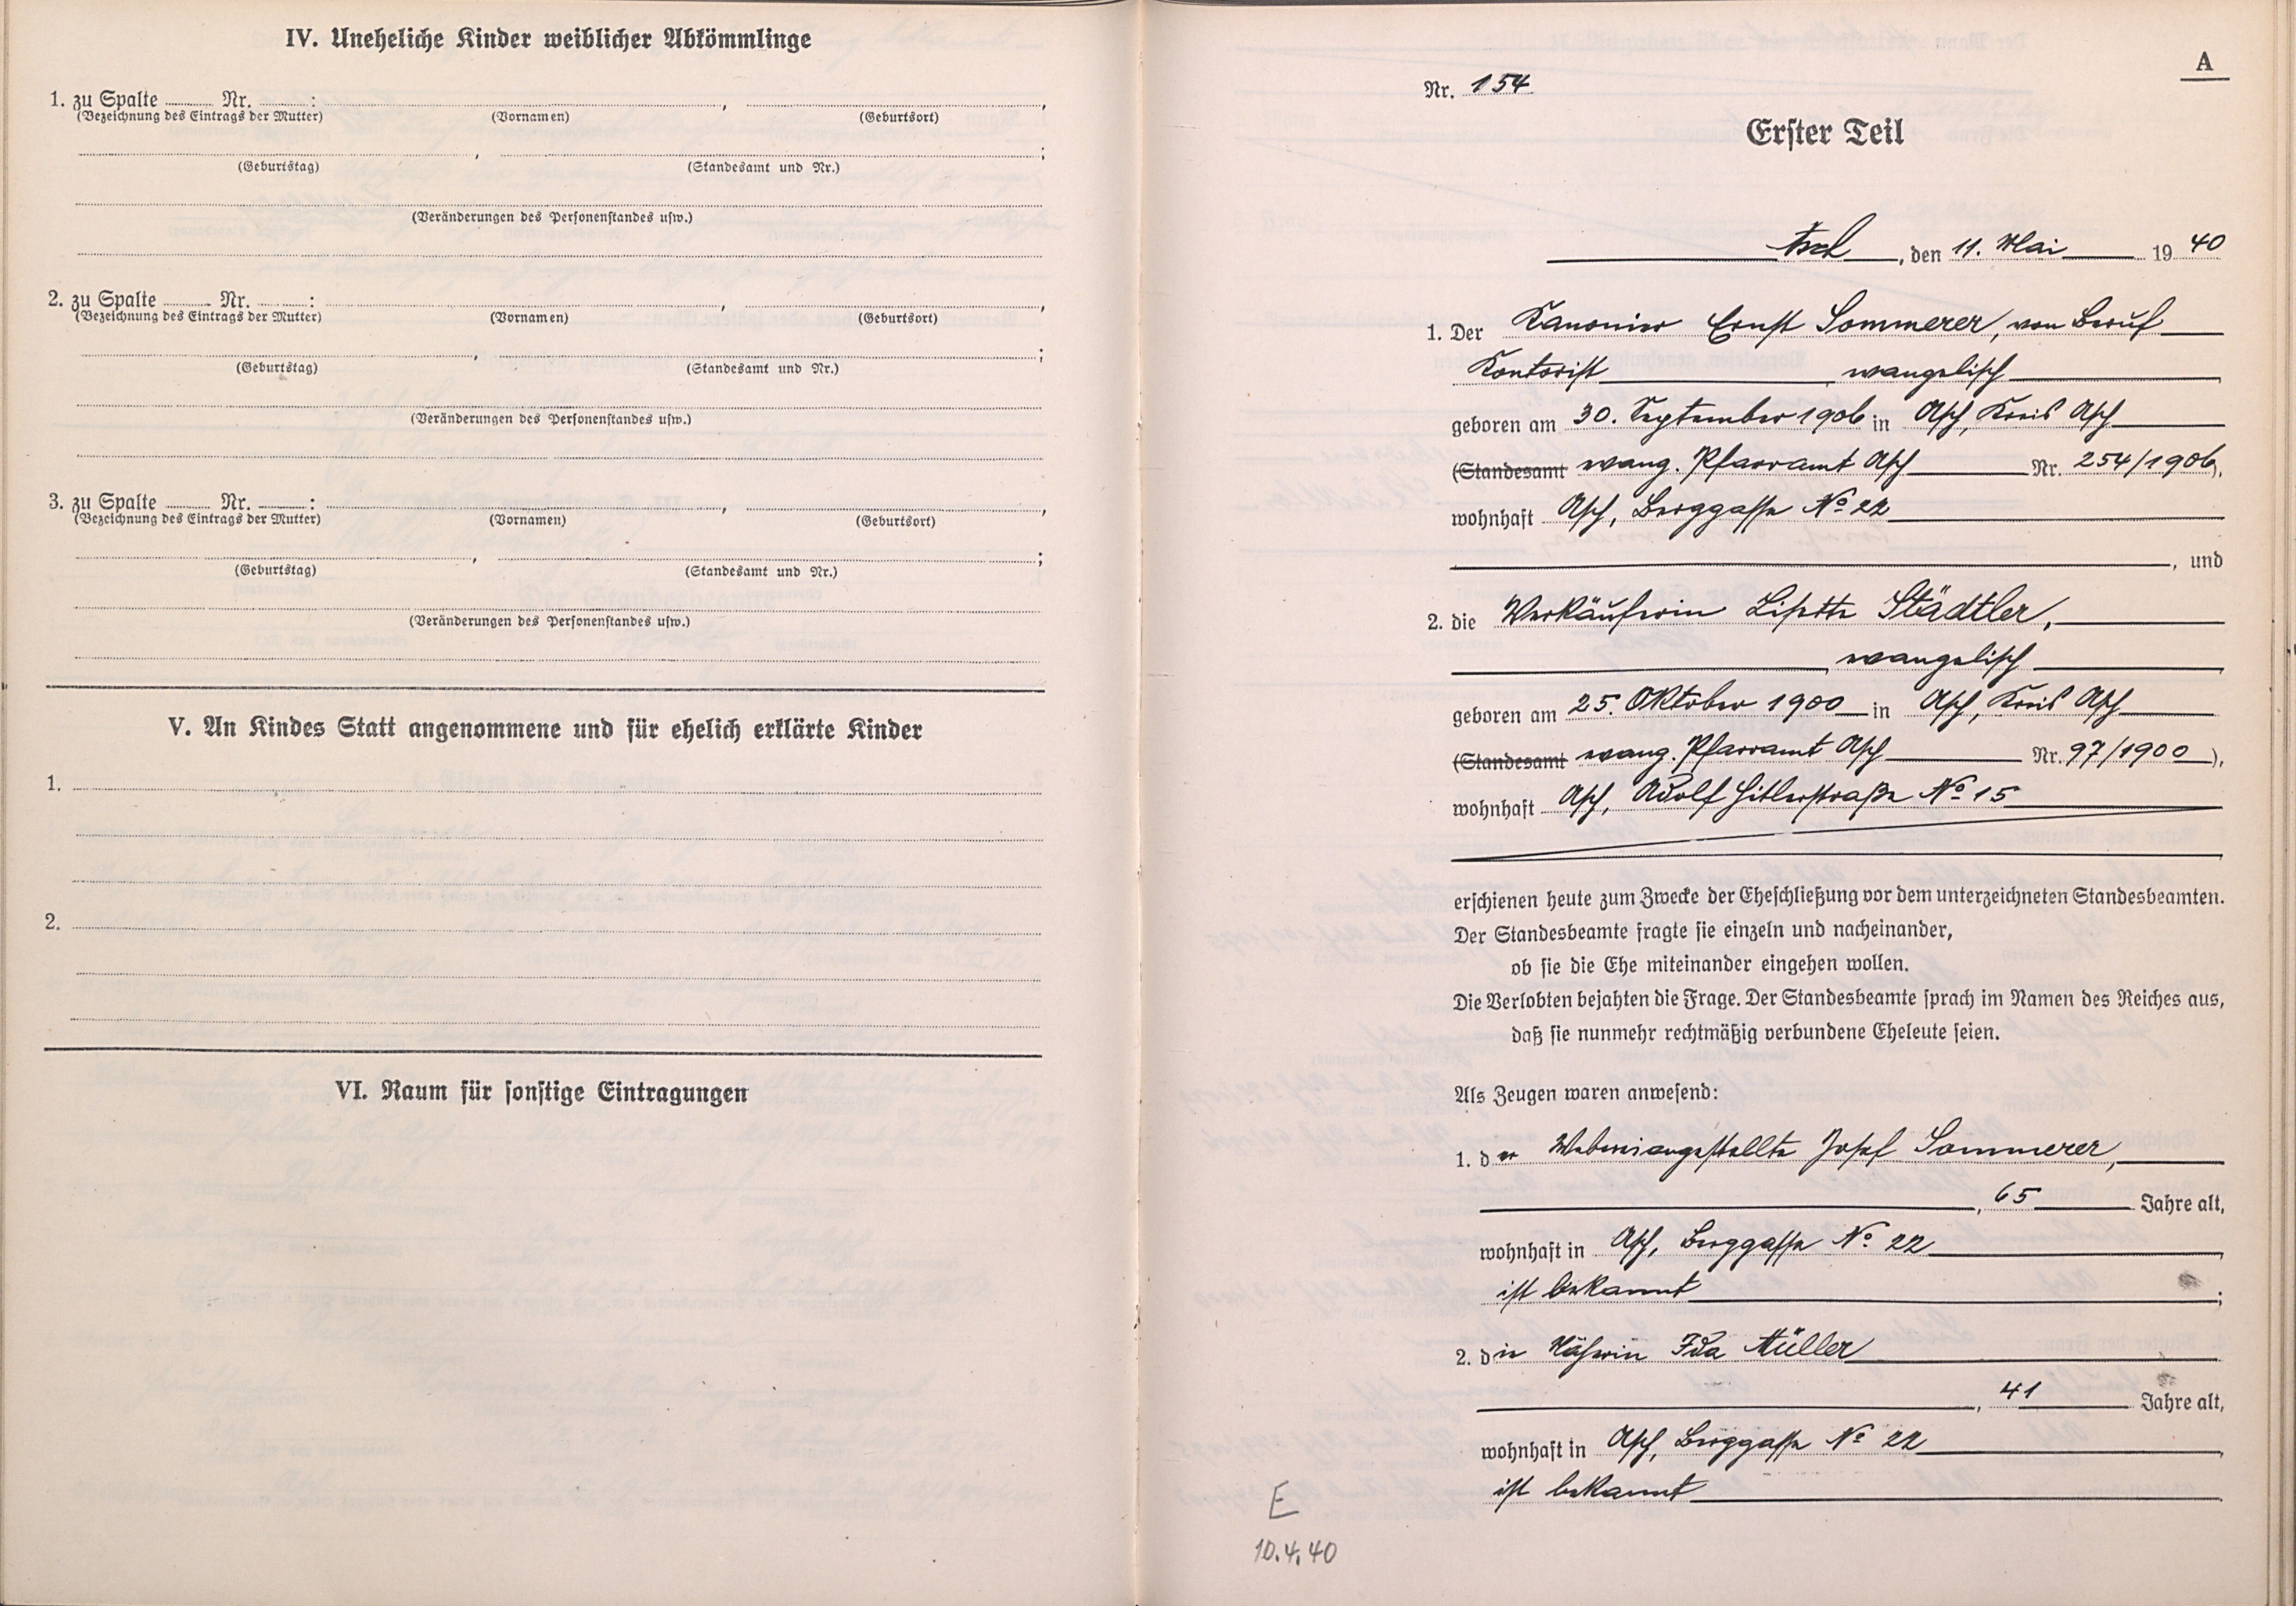 IV. Uneheliche Kinder weiblicher Abkömmlinge
1. zu Spalte ........ Nr. ........ : ........ , ........ ,
(Bezeichnung des Eintrags der Mutter) (Vornamen) (Geburtsort)
, ;
(Geburtstag) (Standesamt und Nr.)
(Veränderungen des Personenstandes usw.)
2. zu Spalte ........ Nr. ........ : ........ , ........ ,
(Bezeichnung des Eintrags der Mutter) (Vornamen) (Geburtsort)
, ;
(Geburtstag) (Standesamt und Nr.)
(Veränderungen des Personenstandes usw.)
3. zu Spalte ........ Nr. ........ : ........ , ........ ,
(Bezeichnung des Eintrags der Mutter) (Vornamen) (Geburtsort)
, ;
(Geburtstag) (Standesamt und Nr.)
(Veränderungen des Personenstandes usw.)
V. An Kindes Statt angenommene und für ehelich erklärte Kinder
1.
2.
VI. Raum für sonstige Eintragungen
A
Nr. 154
Erster Teil
Asch, den 11. Mai 1940
1. Der Kanonier Ernst Sommerer, von Beruf
Kontorist, evangelisch
geboren am 30. September 1906 in Asch, Kreis Asch
(Standesamt evang. Pfarramt Asch Nr. 254/1906),
wohnhaft Asch, Berggasse No 22
, und
2. die Verkäuferin Lisette Städtler,
, evangelisch
geboren am 25. Oktober 1900 in Asch, Kreis Asch
(Standesamt evang. Pfarramt Asch Nr. 97/1900),
wohnhaft Asch, Adolf Hitlerstraße No 15
erschienen heute zum Zwecke der Eheschließung vor dem unterzeichneten Standesbeamten.
Der Standesbeamte fragte sie einzeln und nacheinander,
ob sie die Ehe miteinander eingehen wollen.
Die Verlobten bejahten die Frage. Der Standesbeamte sprach im Namen des Reiches aus,
daß sie nunmehr rechtmäßig verbundene Eheleute seien.
Als Zeugen waren anwesend:
1. der Webereiangestellte Josef Sommerer,
, 65 Jahre alt,
wohnhaft in Asch, Berggasse No 22
ist bekannt ;
2. die Näherin Ida Müller
, 41 Jahre alt,
wohnhaft in Asch, Berggasse No 22
ist bekannt
E
10.4.40